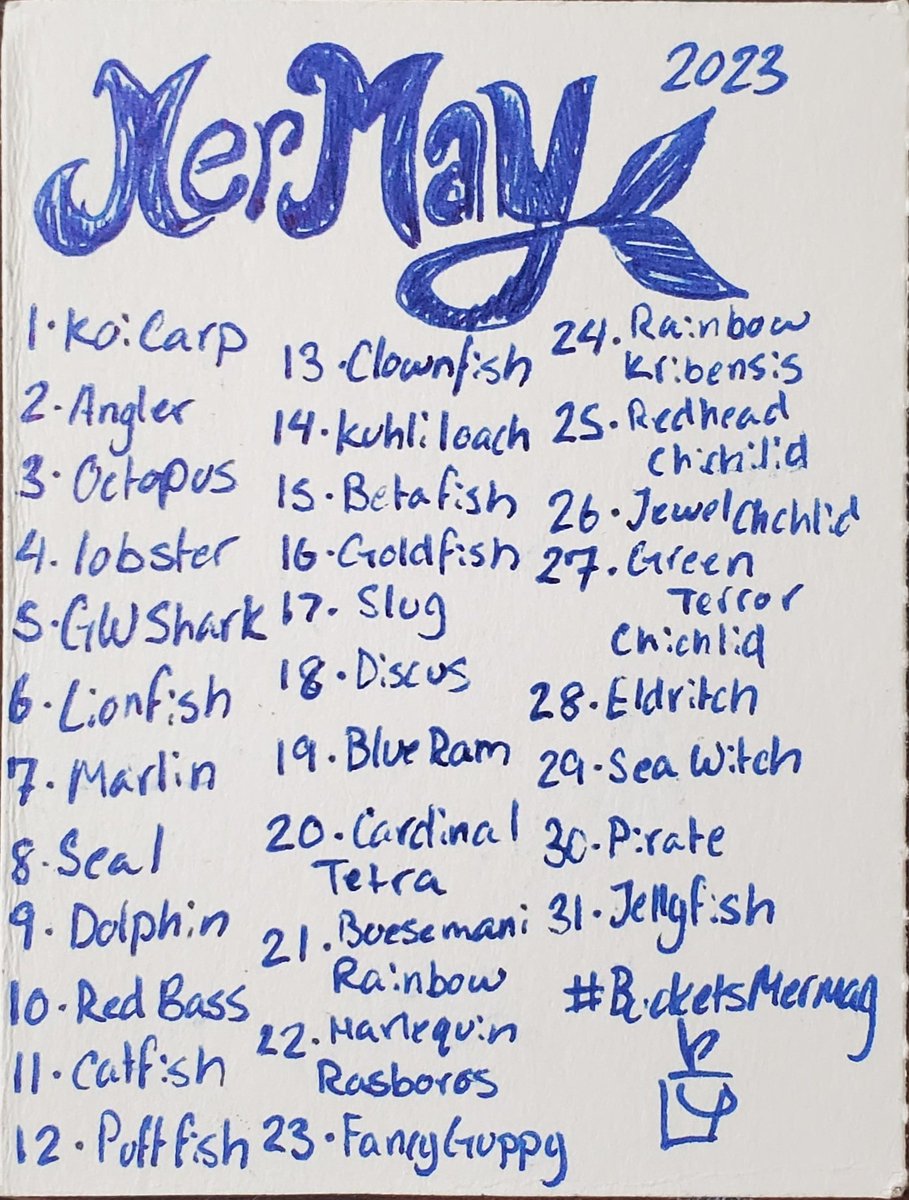 MerMay
2023
1. Koi Carp
2. Angler
3. Octopus
4. lobster
5. GW Shark
6. Lionfish
7. Marlin
8. Seal
9. Dolphin
10. Red Bass
11. Catfish
12. Pufffish
13. Clownfish
14. Kuhli loach
15. Betafish
16. Goldfish
17. Slug
18. Discus
19. Blue Ram
20. Cardinal
Tetra
21. Boesemani
Rainbow
22. Harlequin
Rasboros
23. Fancy Guppy
24. Rainbow
Kribensis
25. Redhead
Chichilid
26. Jewel Chchlid
27. Green
Terror
Chichlid
28. Eldritch
29. Sea Witch
30. Pirate
31. Jellyfish